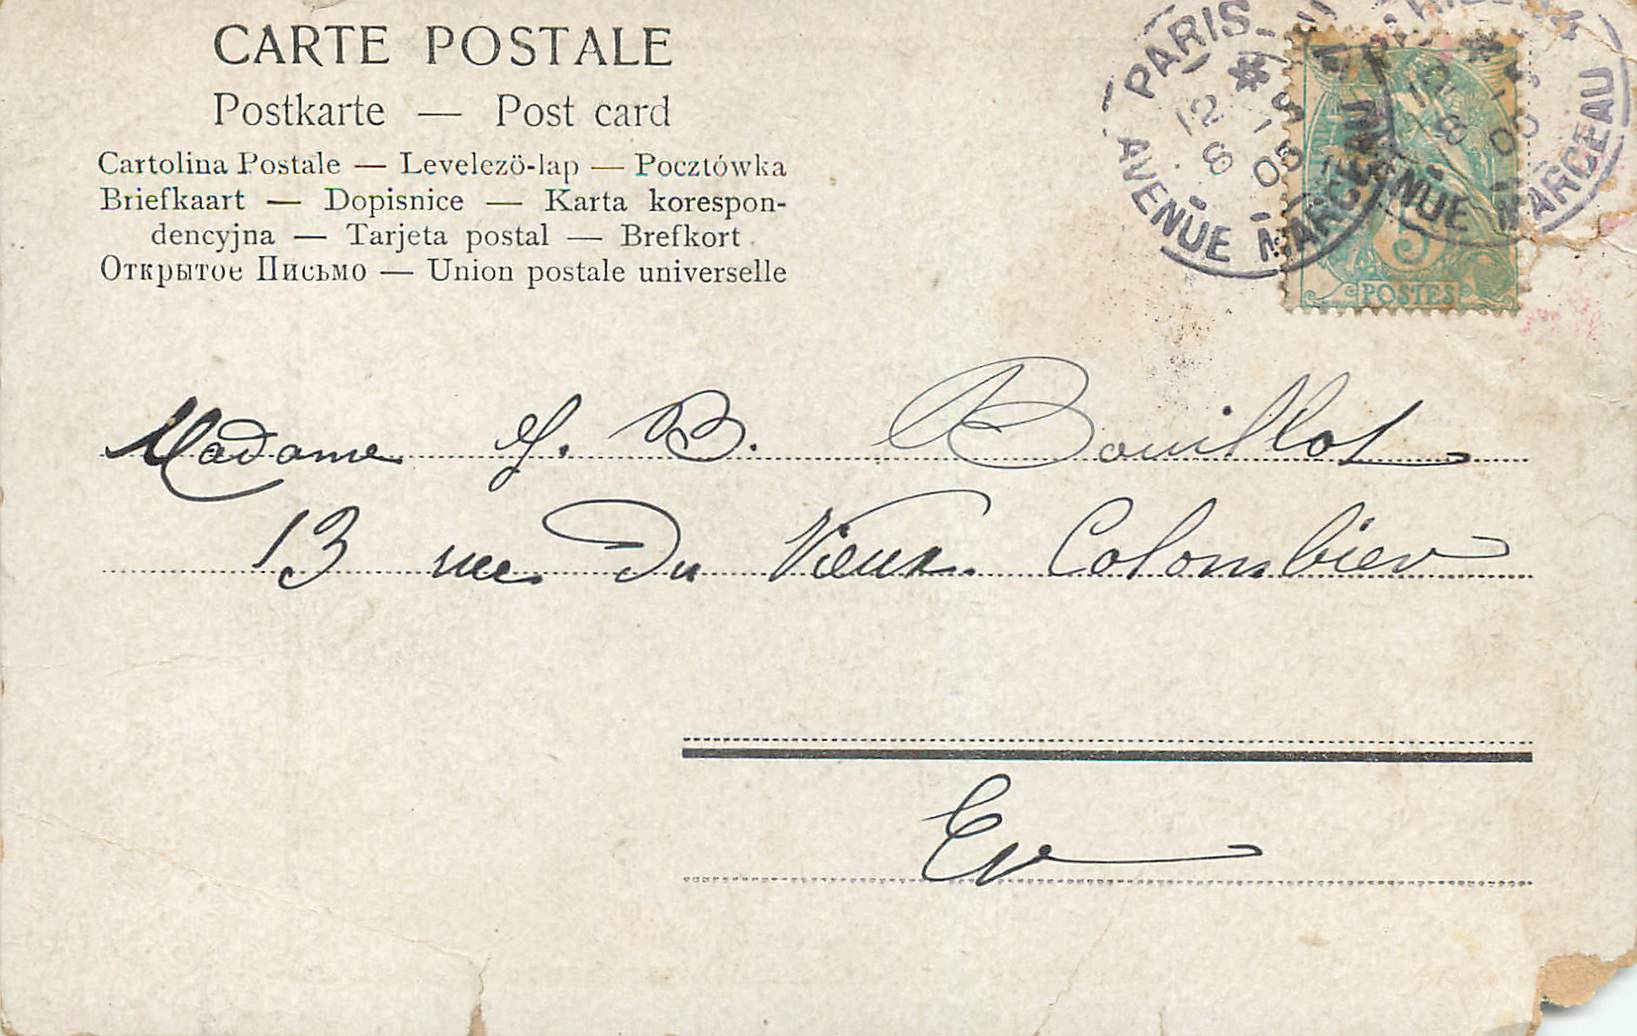 CARTE POSTALE
Postkarte — Post card
Cartolina Postale — Levelező-lap — Pocztówka
Briefkaart — Dopisnice — Karta korespon-
dencyjna — Tarjeta postal — Brefkort
Открытое Письмо — Union postale universelle
PARIS
AVENUE MARCEAU
AVENUE MARCEAU
5
POSTES
Madame J. B. Bouillot
13 rue du Vieux Colombier
Ev